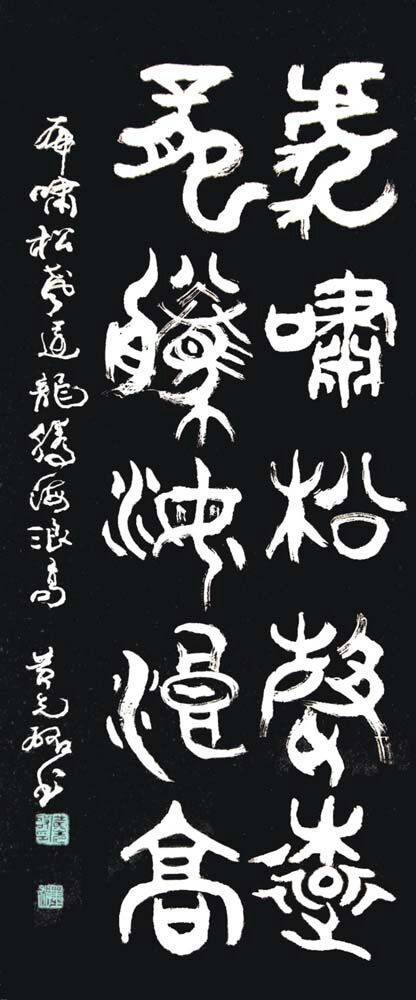 虎嘯松聲遠
龍騰海浪高
虎嘯松聲遠龍騰海浪高